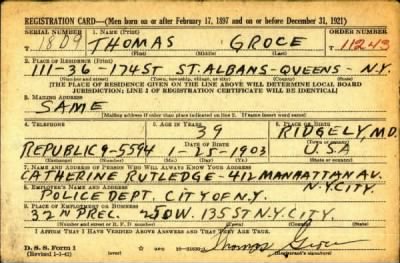 REGISTRATION CARD—(Men born on or after February 17, 1897 and on or before December 31, 1921)
SERIAL NUMBER 1. NAME (Print) ORDER NUMBER
1809 THOMAS GROCE 11243
(First) (Middle) (Last)
2. PLACE OF RESIDENCE (Print)
111-36-174ST ST. ALBANS-QUEENS-N.Y.
(Number and street) (Town, township, village, or city) (County) (State)
[THE PLACE OF RESIDENCE GIVEN ON THE LINE ABOVE WILL DETERMINE LOCAL BOARD
JURISDICTION; LINE 2 OF REGISTRATION CERTIFICATE WILL BE IDENTICAL]
3. MAILING ADDRESS
SAME
[Mailing address if other than place indicated on line 2. If same insert word same]
4. TELEPHONE 5. AGE IN YEARS 6. PLACE OF BIRTH
39 RIDGELY, MD.
DATE OF BIRTH (Town or county)
REPUBLIC 9-5594 1-25-1903 U.S.A
(Exchange) (Number) (Mo.) (Day) (Yr.) (State or country)
7. NAME AND ADDRESS OF PERSON WHO WILL ALWAYS KNOW YOUR ADDRESS
CATHERINE RUTLEDGE-412 MANHATTAN AV.
N.Y. CITY.
8. EMPLOYER'S NAME AND ADDRESS
POLICE DEPT. CITY OF N.Y.
9. PLACE OF EMPLOYMENT OR BUSINESS
32ND PREC. 250W. 135 ST N.Y. CITY.
(Number and street or R. F. D. number) (Town) (County) (State)
I AFFIRM THAT I HAVE VERIFIED ABOVE ANSWERS AND THAT THEY ARE TRUE.
D. S. S. Form 1
(Revised 1-3-42) Thomas Groce
(Registrant's signature)